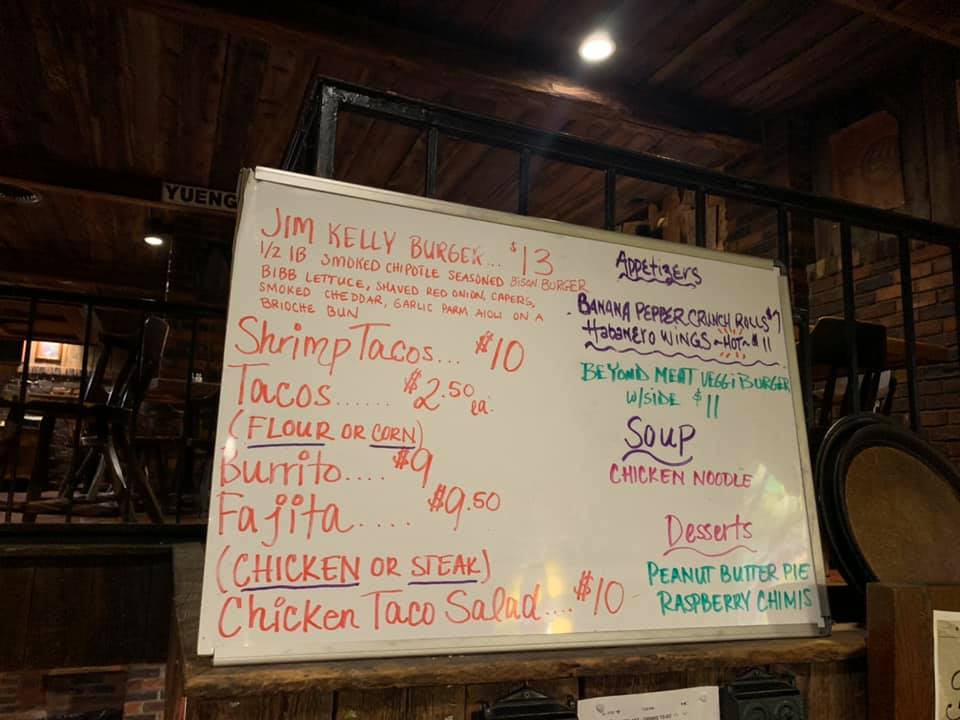 YUENG
JIM KELLY BURGER... $13
1/2 lB. SMOKED CHIPOTLE SEASONED BISON BURGER
BIBB LETTUCE, SHAVED RED ONION, CAPERS,
SMOKED CHEDDAR, GARLIC PARM AIOLI ON A
BRIOCHE BUN
Shrimp Tacos... $10
Tacos...... $2.50 ea.
(FLOUR OR CORN)
Burrito.... $9
Fajita..... $9.50
(CHICKEN OR STEAK)
Chicken Taco Salad.... $10
Appetizers
BANANA PEPPER CRUNCH ROLLS $7
Habanero WINGS ~HOT~ $11
BEYOND MEAT VEGGI BURGER
W/SIDE $11
Soup
CHICKEN NOODLE
Desserts
PEANUT BUTTER PIE
RASPBERRY CHIMIS